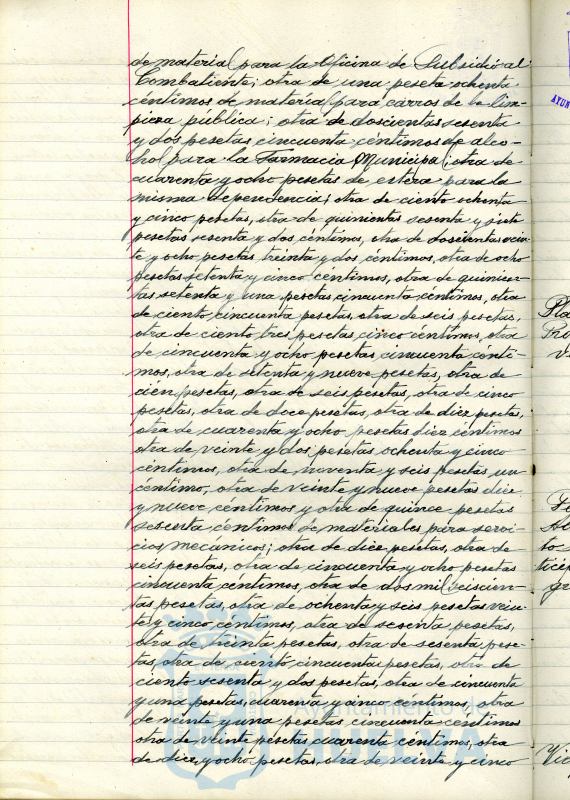 de material para la Oficina de Subsidio al
Combatiente; otra de una peseta ochenta
céntimos de material para carros de la lim-
pieza pública; otra de doscientas sesenta
y dos pesetas cincuenta céntimos de alco-
hol para la Farmacia Municipal; otra de
cuarenta y ocho pesetas de estera para la
misma dependencia; otra de ciento ochenta
y cinco pesetas, otra de quinientas sesenta y siete
pesetas sesenta y dos céntimos, otra de doscientas vein-
te y ocho pesetas treinta y dos céntimos, otra de ocho
pesetas setenta y cinco céntimos, otra de quinien-
tas setenta y una pesetas cincuenta céntimos, otra
de ciento cincuenta pesetas, otra de seis pesetas,
otra de ciento tres pesetas cinco céntimos, otra
de cincuenta y ocho pesetas cincuenta cénti-
mos, otra de setenta y nueve pesetas, otra de
cien pesetas, otra de seis pesetas, otra de cinco
pesetas, otra de doce pesetas, otra de diez pesetas,
otra de cuarenta y ocho pesetas diez céntimos
otra de veinte y dos pesetas ochenta y cinco
céntimos, otra de noventa y seis pesetas un
céntimo, otra de veinte y nueve pesetas diez
y nueve céntimos y otra de quince pesetas
sesenta céntimos de materiales para servi-
cios mecánicos; otra de diez pesetas, otra de
seis pesetas, otra de cincuenta y ocho pesetas
cincuenta céntimos, otra de dos mil seiscien-
tas pesetas, otra de ochenta y seis pesetas vein-
te y cinco céntimos, otra de sesenta pesetas,
otra de treinta pesetas, otra de sesenta pese-
tas, otra de ciento cincuenta pesetas, otra de
ciento sesenta y dos pesetas, otra de cincuenta
y una pesetas cuarenta y cinco céntimos, otra
de veinte y una pesetas cincuenta céntimos
otra de veinte pesetas cuarenta céntimos, otra
de diez y ocho pesetas, otra de veinte y cinco
Ayuntamiento de
HUELVA